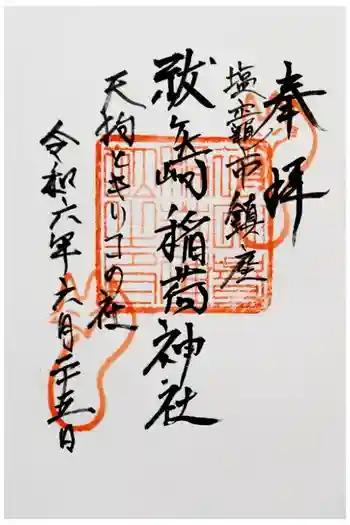 奉拝
塩竈市鎮座
祓ヶ崎稲荷神社
天狗ときつねの社
令和六年六月二十五日